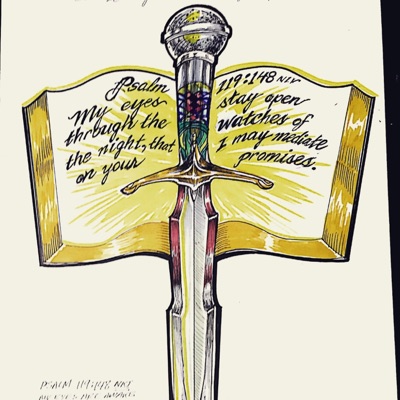 Psalm 119:148 NIV
My eyes stay open
through the watches of
the night, that I may mediate
on your promises.
PSALM 119:148 NIV